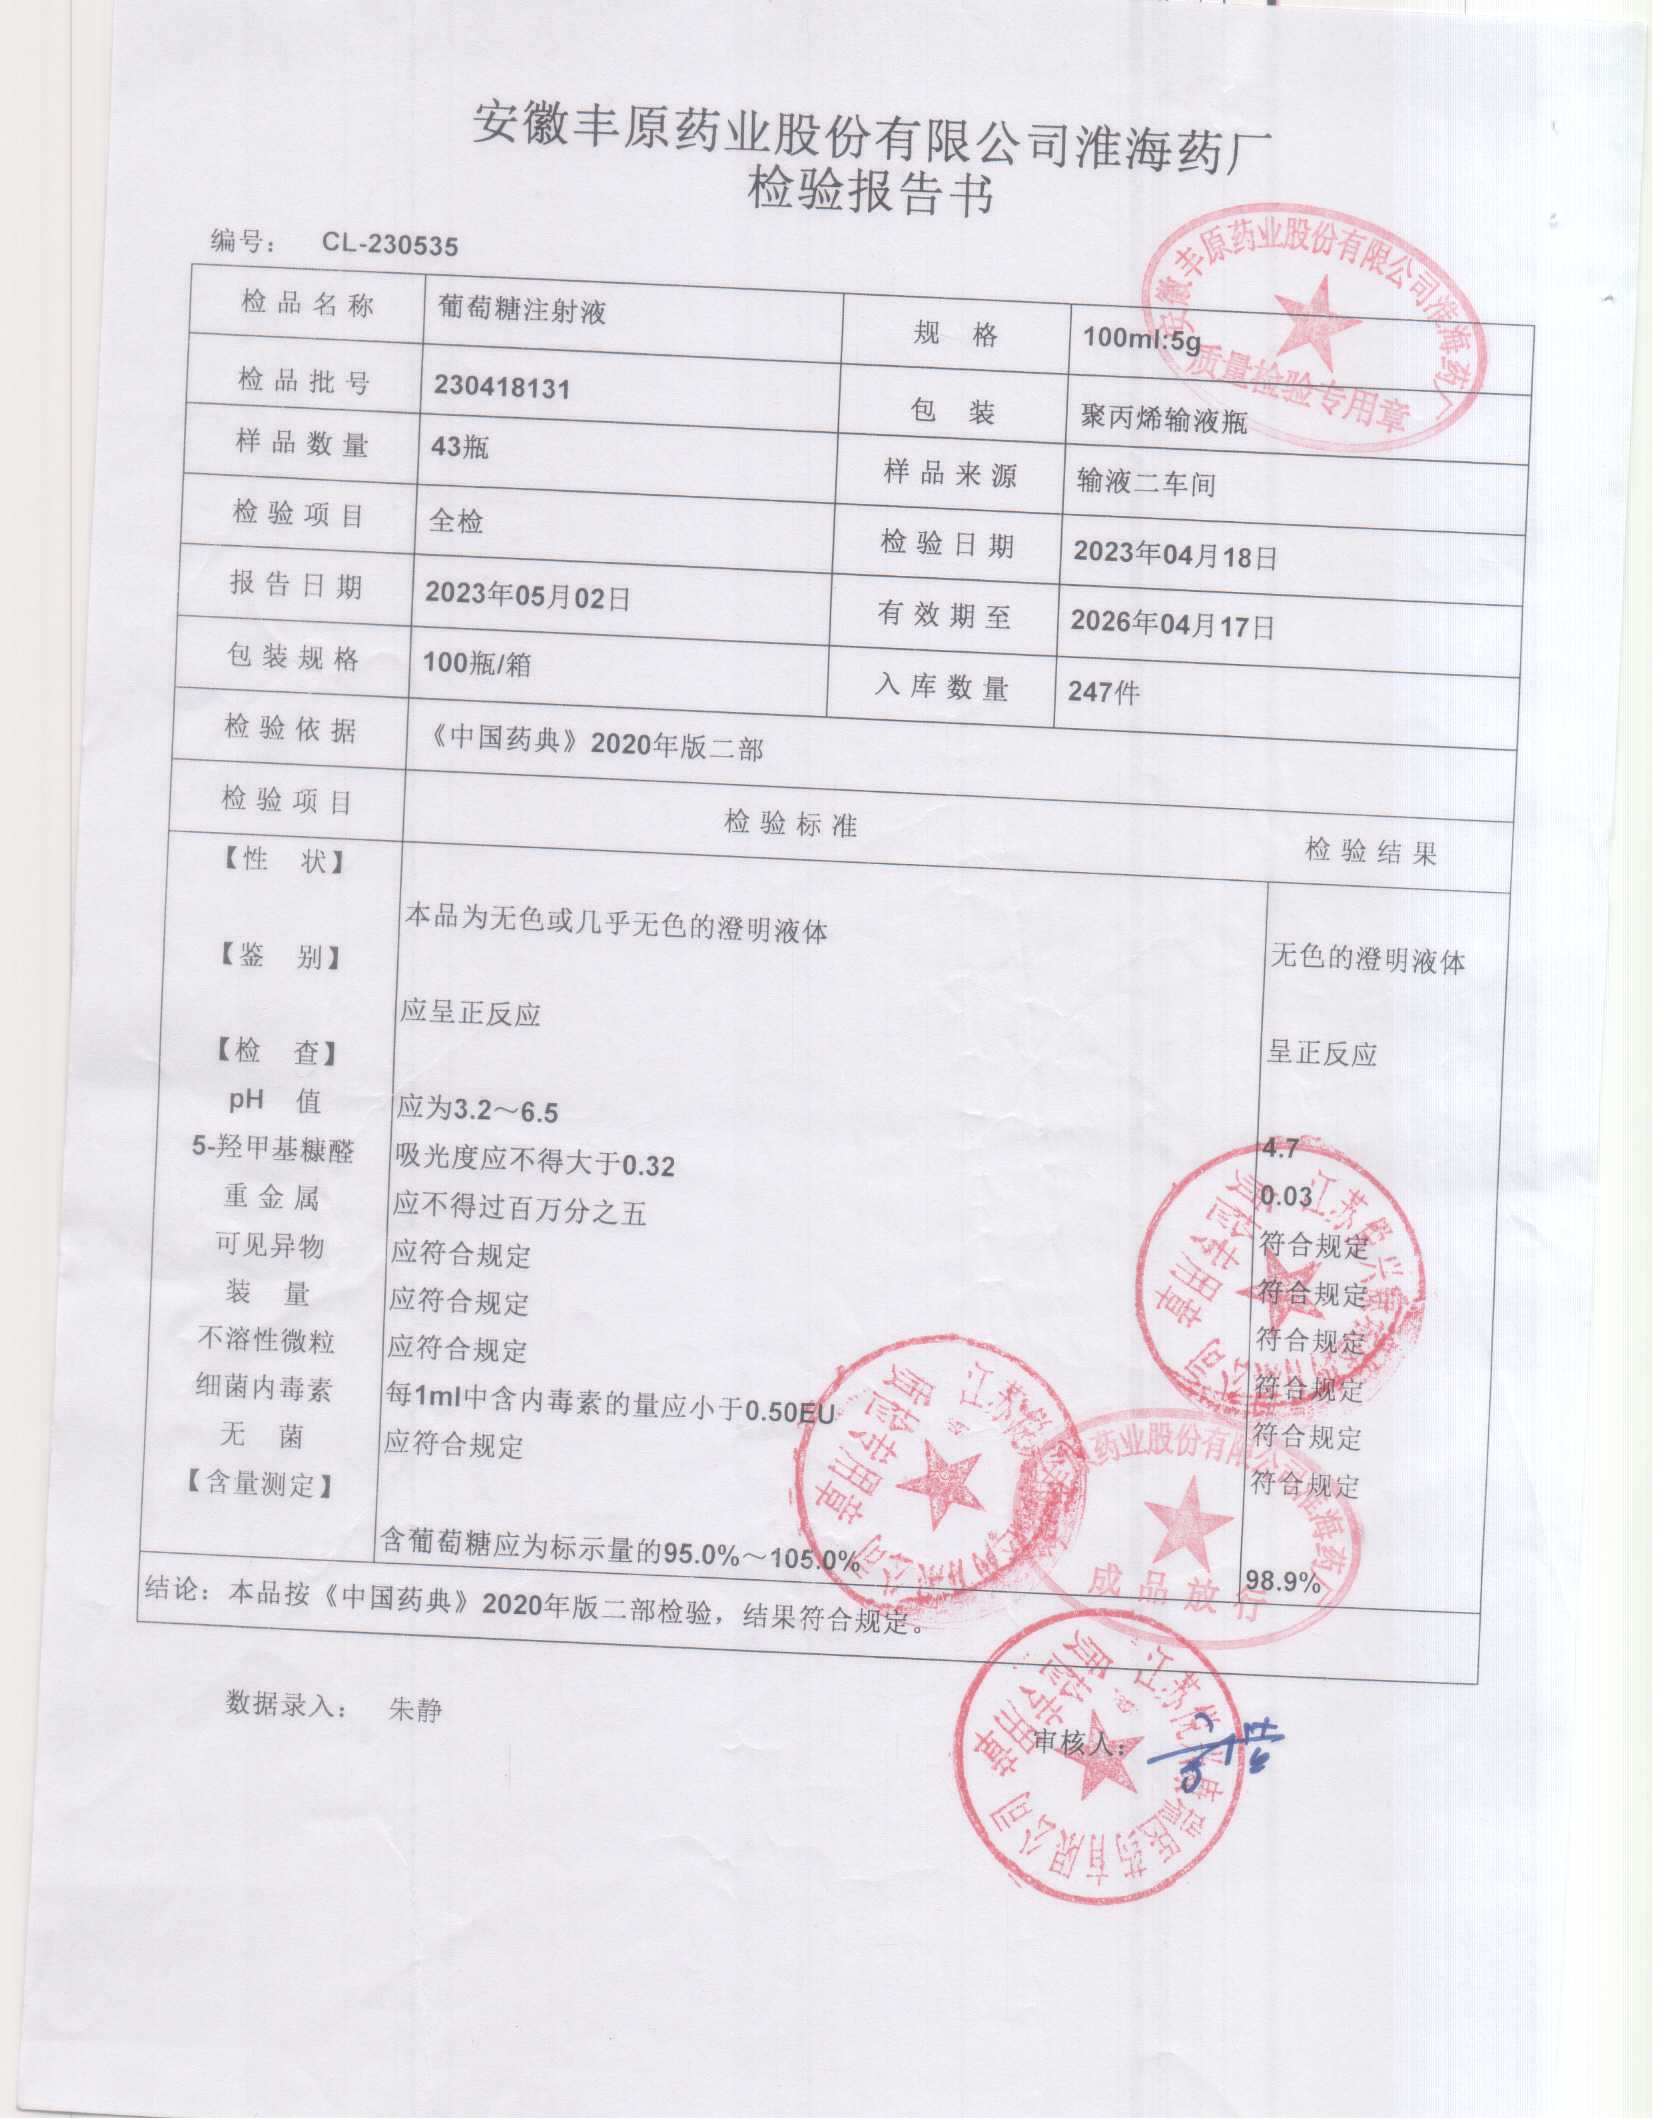 安徽丰原药业股份有限公司淮海药厂
检验报告书
编号： CL-230535
检品名称 葡萄糖注射液 规 格 100ml:5g
检品批号 230418131 包 装 聚丙烯输液瓶
样品数量 43瓶 样品来源 输液二车间
检验项目 全检 检验日期 2023年04月18日
报告日期 2023年05月02日 有效期至 2026年04月17日
包装规格 100瓶/箱 入库数量 247件
检验依据 《中国药典》2020年版二部
检验项目 检验标准 检验结果
【性 状】
本品为无色或几乎无色的澄明液体 无色的澄明液体
【鉴 别】
应呈正反应 呈正反应
【检 查】
pH 值 应为3.2～6.5 4.7
5-羟甲基糠醛 吸光度应不得大于0.32 0.03
重金属 应不得过百万分之五 符合规定
可见异物 应符合规定 符合规定
装 量 应符合规定 符合规定
不溶性微粒 应符合规定 符合规定
细菌内毒素 每1ml中含内毒素的量应小于0.50EU 符合规定
无 菌 应符合规定 符合规定
【含量测定】
含葡萄糖应为标示量的95.0%～105.0% 98.9%
结论：本品按《中国药典》2020年版二部检验，结果符合规定。
数据录入： 朱静 审核人：
安徽丰原药业股份有限公司淮海药厂
质量检验专用章
质检专用章
质检专用章
药业股份有限公司淮海药厂
成品放行
医药有限公司
质检专用章